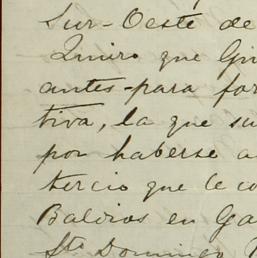 Sur-Oeste de
Quiro que Gin
antes-para for
tiva, la que su
por haberse a
tercio que le co
Baldios en Ga
Sto Domingo